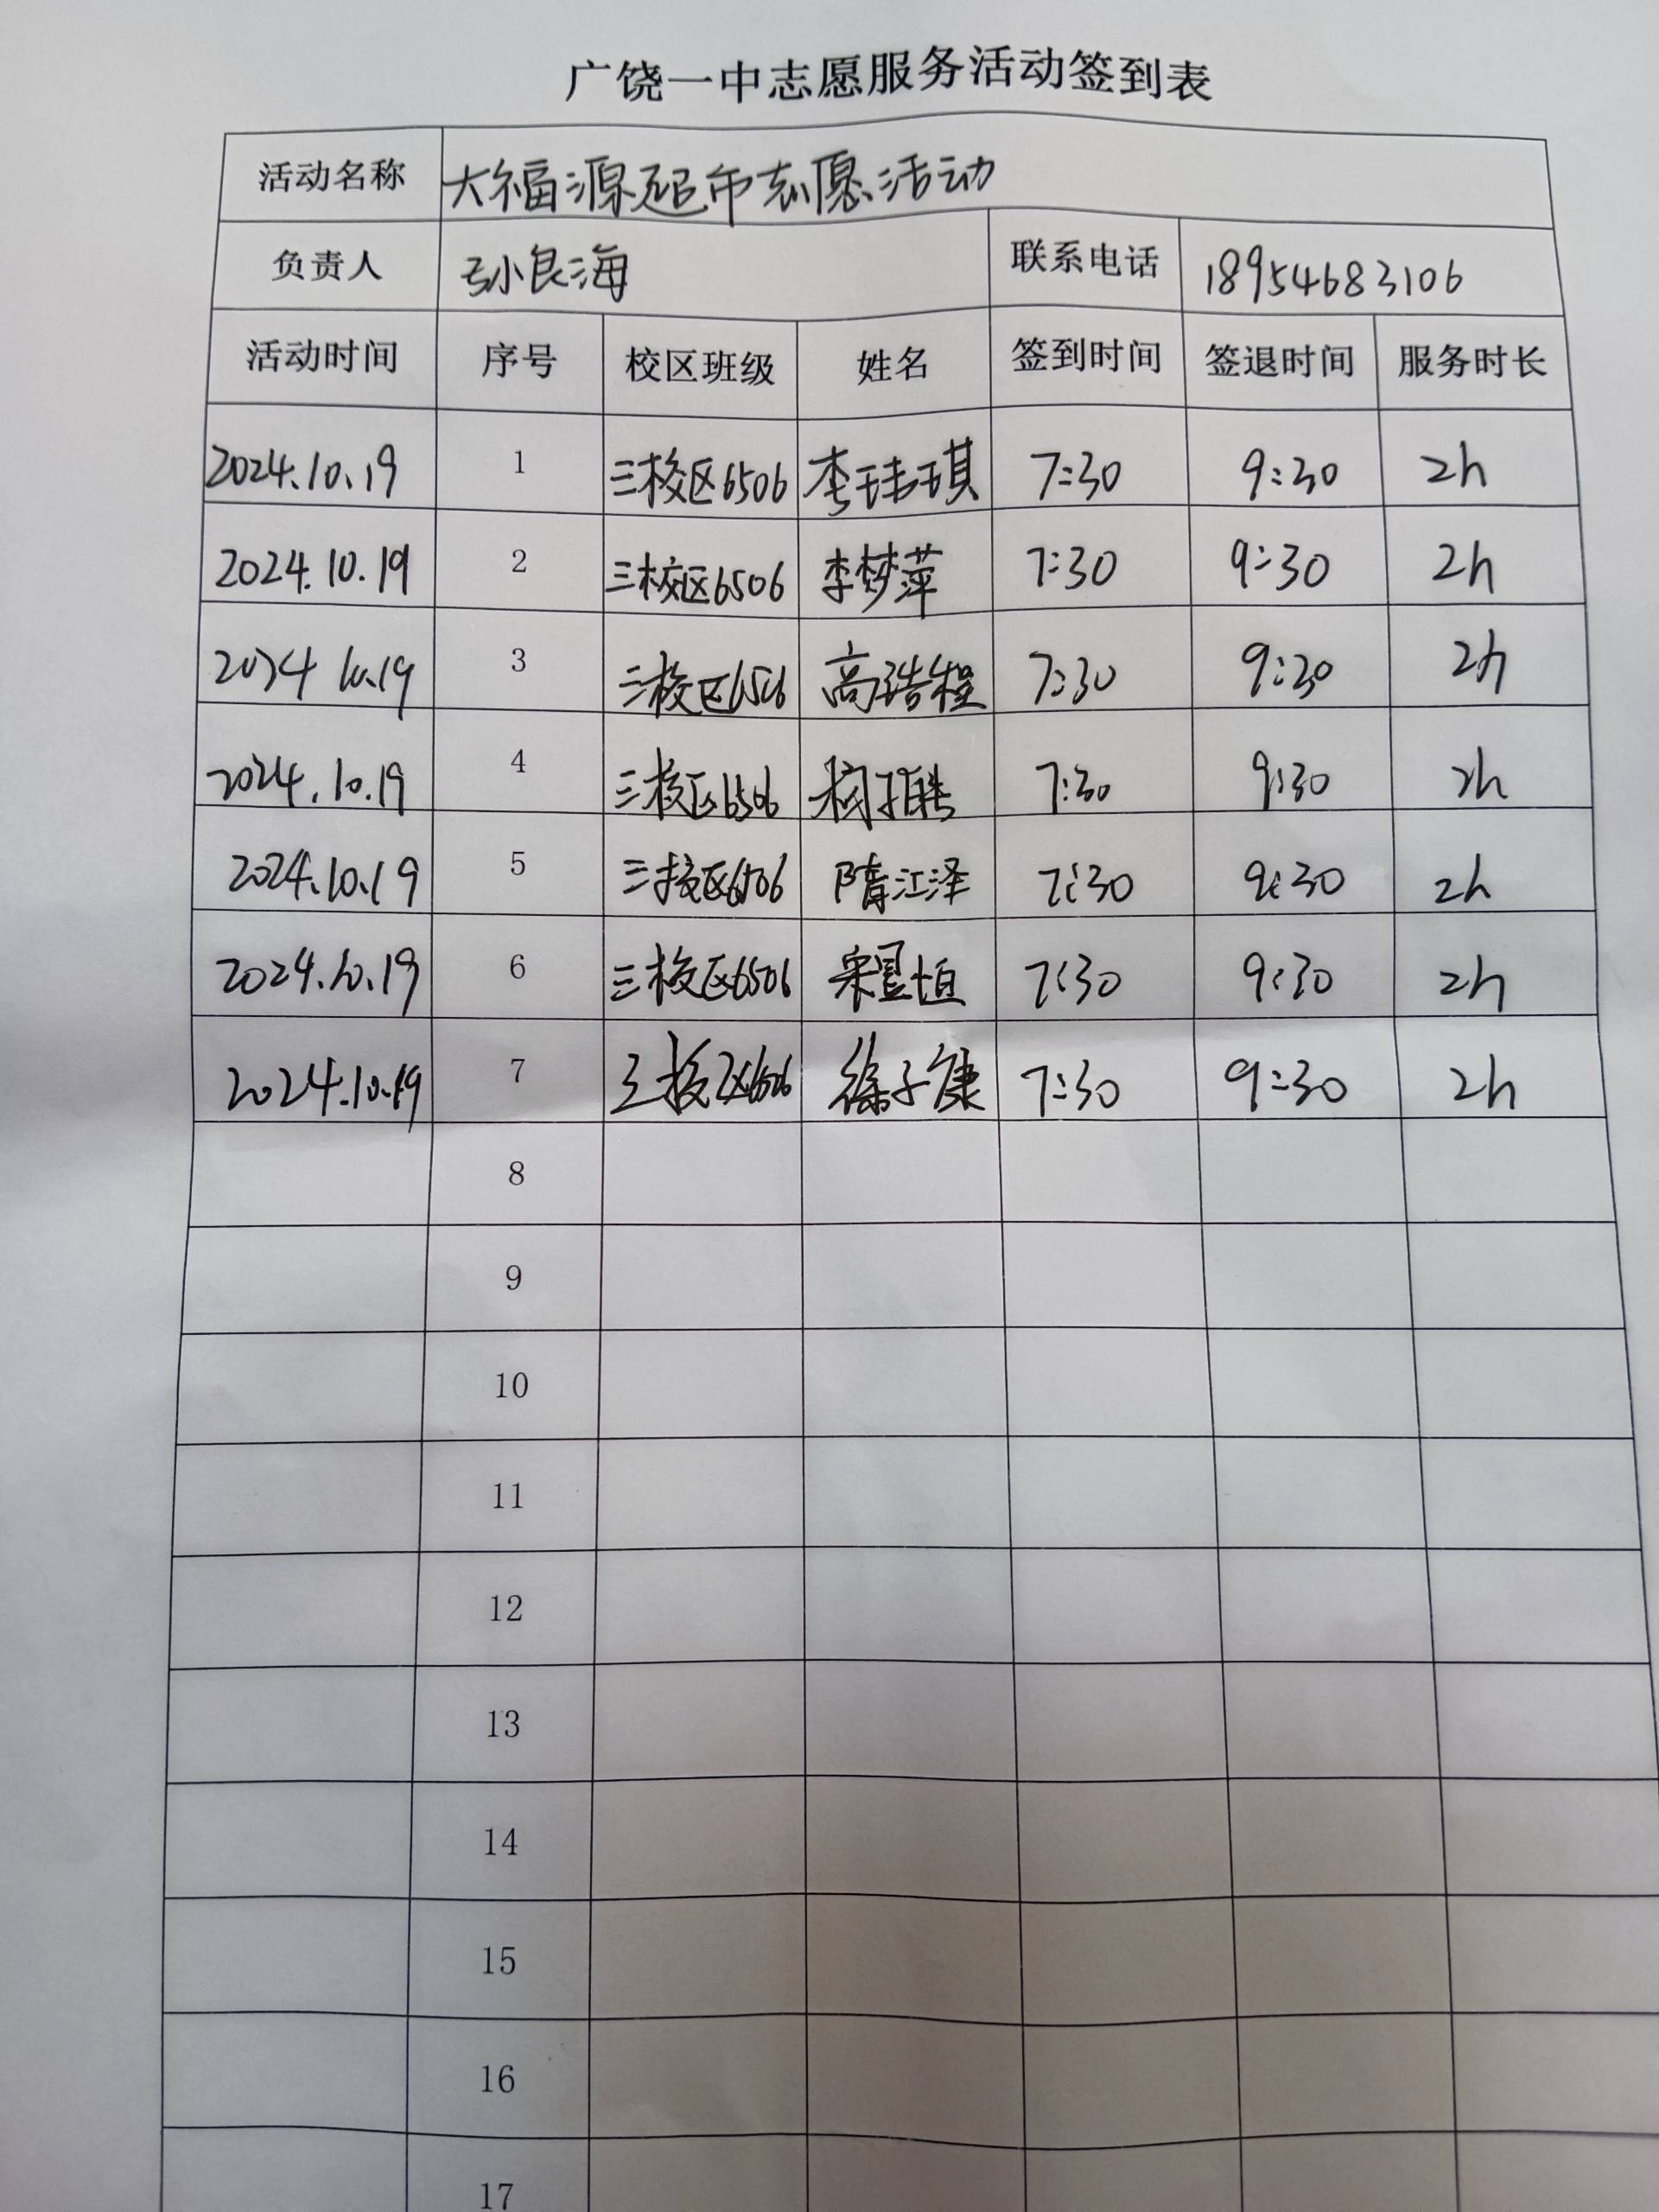 广饶一中志愿服务活动签到表
活动名称 大福源超市志愿活动
负责人 孙良海 联系电话 18954683106
活动时间 序号 校区班级 姓名 签到时间 签退时间 服务时长
2024.10.19 1 三校区6506 李玤琪 7:30 9:30 2h
2024.10.19 2 三校区6506 李梦萍 7:30 9:30 2h
2024 10.19 3 三校区6506 高浩程 7:30 9:30 2h
2024.10.19 4 三校区6506 7:30 9:30 2h
2024.10.19 5 三校区6506 隋江泽 7:30 9:30 2h
2024.10.19 6 三校区6506 7:30 9:30 2h
2024.10.19 7 三校区6506 徐子康 7:30 9:30 2h
8
9
10
11
12
13
14
15
16
17